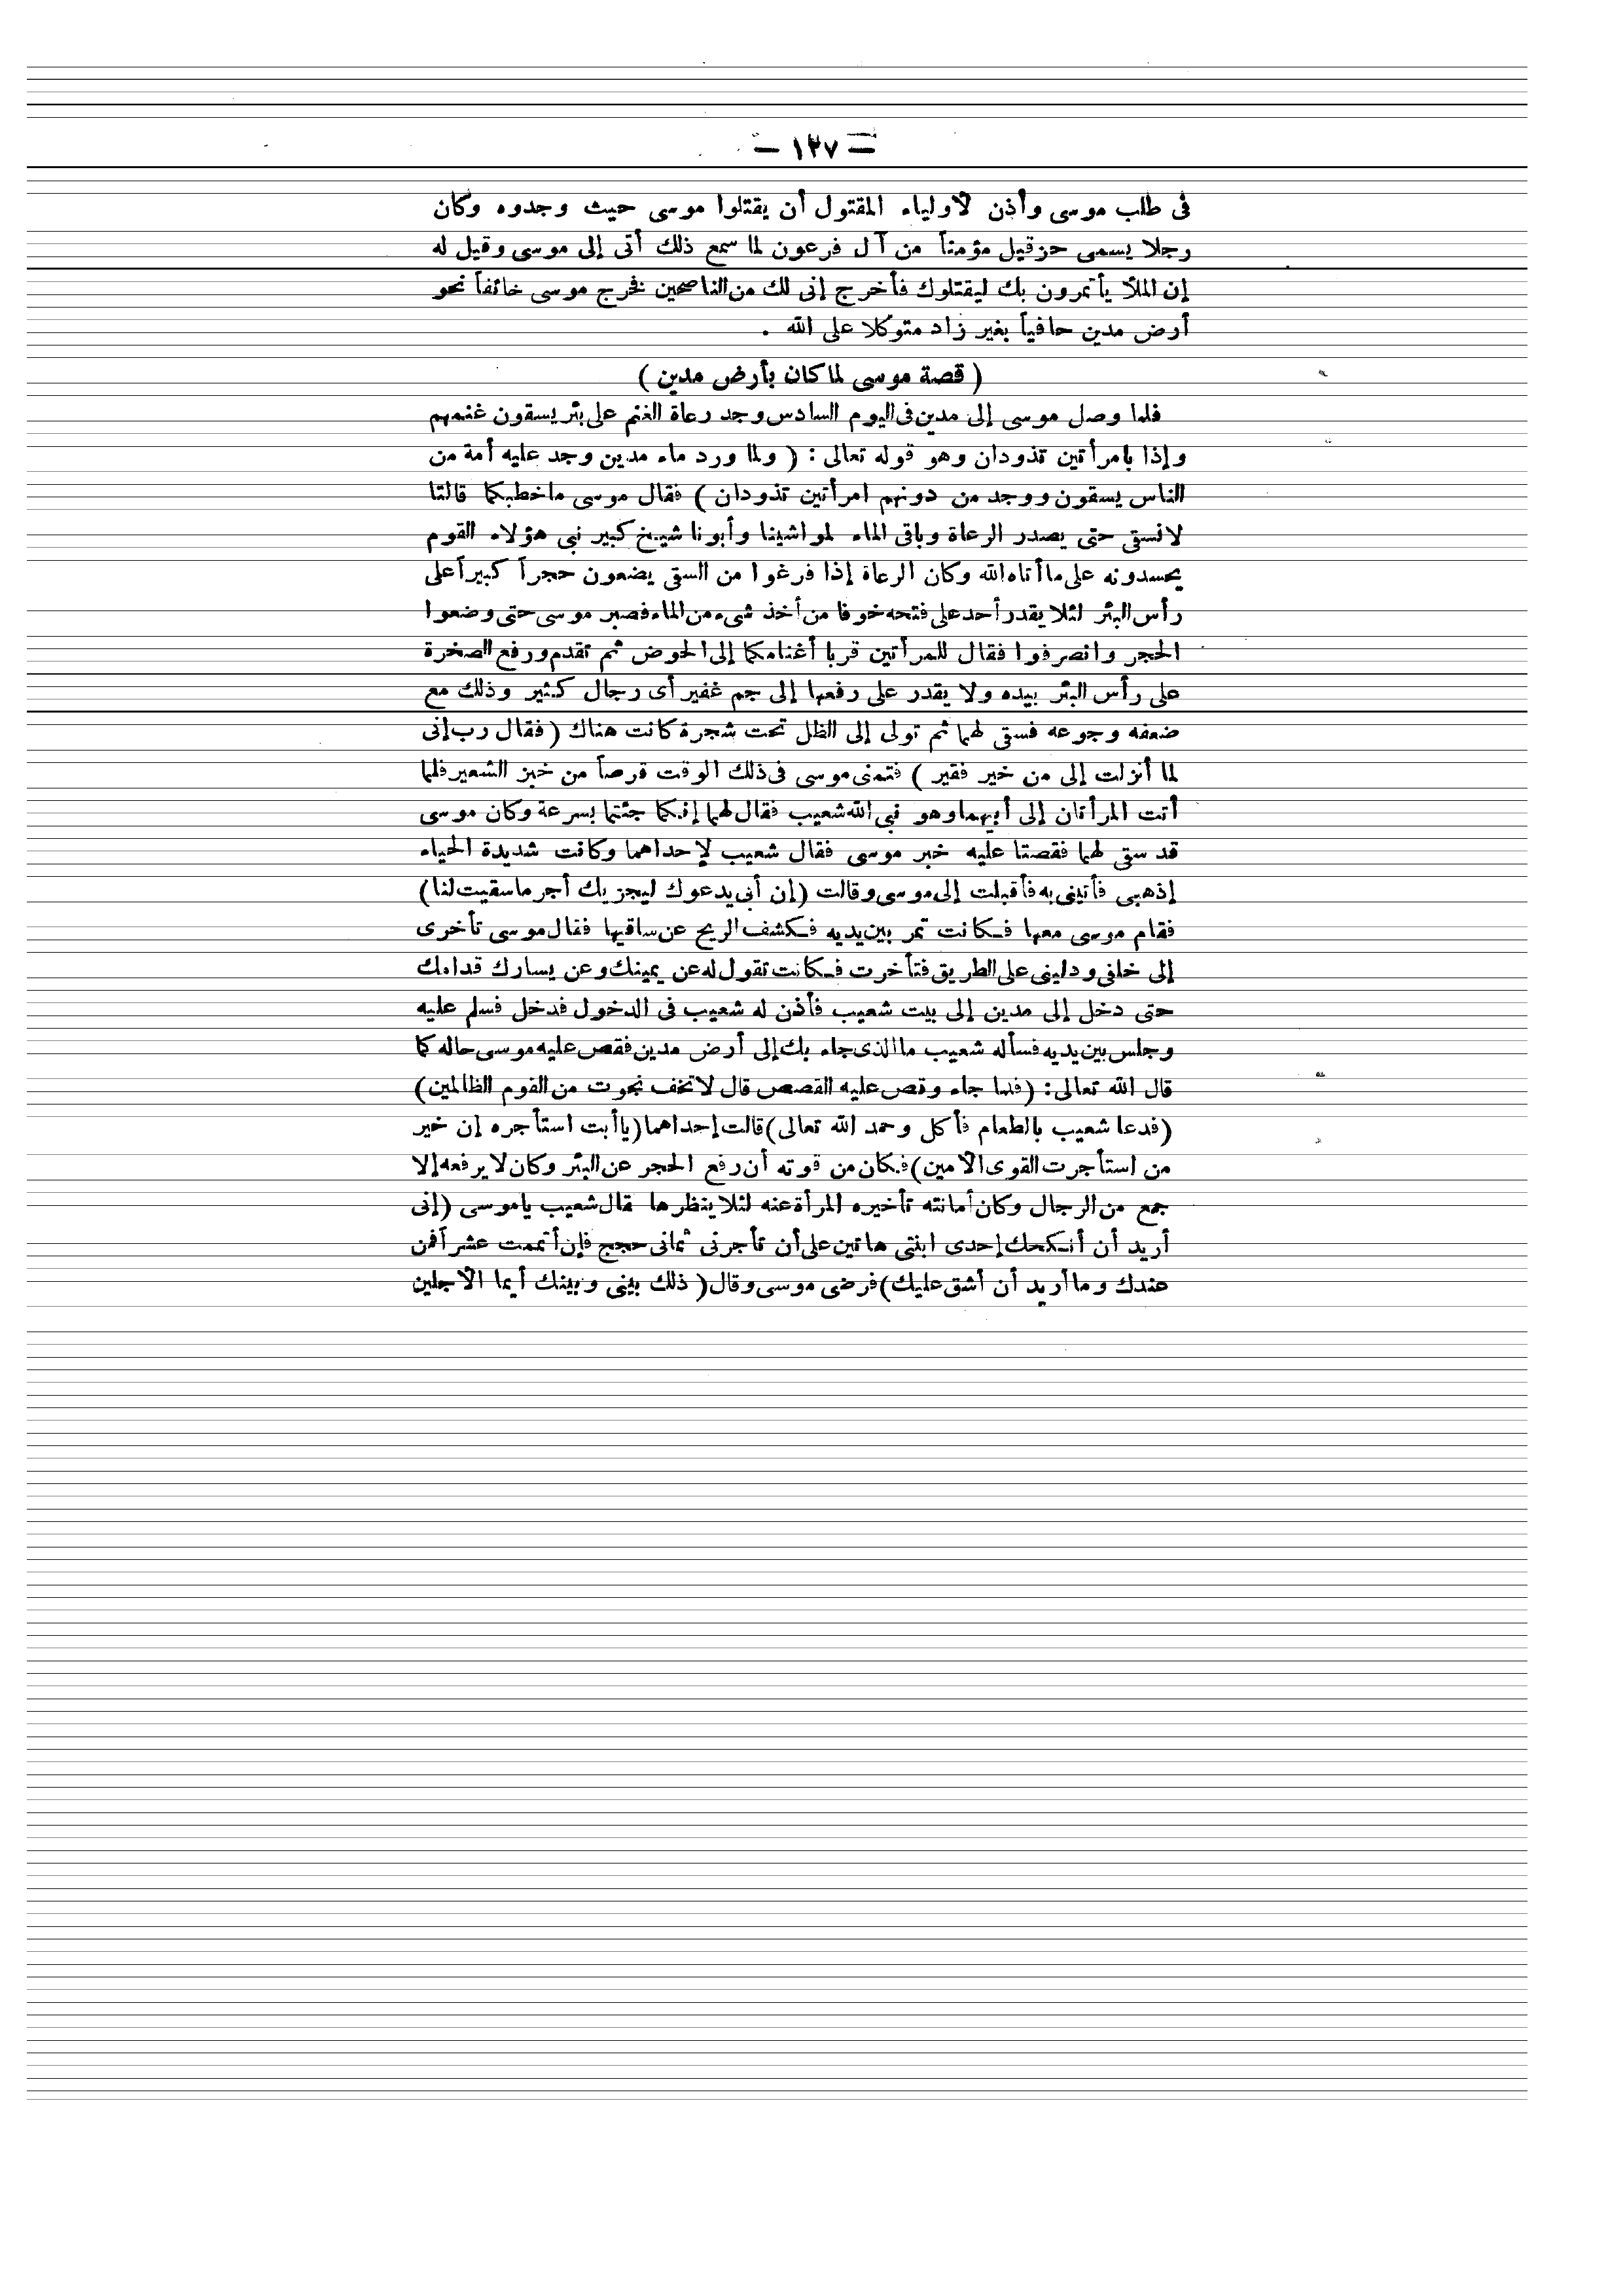 — ١٢٧ —
فى طلب موسى وأذن لأولياء المقتول أن يقتلوا موسى حيث وجدوه وكان
رجلا يسمى حزقيل مؤمناً من آل فرعون لما سمع ذلك أتى إلى موسى وقيل له
إن الملأ يأتمرون بك ليقتلوك فأخرج إنى لك من الناصحين فخرج موسى خائفاً نحو
أرض مدين حافياً بغير زاد متوكلا على الله .
( قصة موسى لما كان بأرض مدين )
فلما وصل موسى إلى مدين فى اليوم السادس وجد رعاة الغنم على بئر يسقون غنمهم
وإذا بامرأتين تذودان وهو قوله تعالى : ( ولما ورد ماء مدين وجد عليه أمة من
الناس يسقون ووجد من دونهم امرأتين تذودان ) فقال موسى ماخطبكما قالتا
لانسقى حتى يصدر الرعاة وباقى الماء لمواشينا وأبونا شيخ كبير نبى هؤلاء القوم
يحسدونه على ما أتاه الله وكان الرعاة إذا فرغوا من السقى يضعون حجراً كبيراً على
رأس البئر لئلا يقدر أحد على فتحه خوفا من أخذ شىء من الماء فصبر موسى حتى وضعوا
الحجر وانصرفوا فقال للمرأتين قربا أغنامكما إلى الحوض ثم تقدم ورفع الصخرة
على رأس البئر بيده ولا يقدر على رفعها إلى جم غفير أى رجال كثير وذلك مع
ضعفه وجوعه فسقى لهما ثم تولى إلى الظل تحت شجرة كانت هناك ( فقال رب إنى
لما أنزلت إلى من خير فقير ) فتمنى موسى فى ذلك الوقت قرصاً من خبز الشعير فلما
أتت المرأتان إلى أبيهما وهو نبى الله شعيب فقال لهما إنكما جئتما بسرعة وكان موسى
قد سقى لهما فقصتا عليه خبر موسى فقال شعيب لإحداهما وكانت شديدة الحياء
إذهبى فأتينى به فأقبلت إلى موسى وقالت (إن أبى يدعوك ليجزيك أجر ماسقيت لنا)
فقام موسى معها فكانت تمر بين يديه فكشف الريح عن ساقيها فقال موسى تأخرى
إلى خلفى ودلينى على الطريق فتأخرت فكانت تقول له عن يمينك وعن يسارك قدامك
حتى دخل إلى مدين إلى بيت شعيب فأذن له شعيب فى الدخول فدخل فسلم عليه
وجلس بين يديه فسأله شعيب ما الذى جاء بك إلى أرض مدين فقص عليه موسى حاله كما
قال الله تعالى : (فلما جاء وقص عليه القصص قال لاتخف نجوت من القوم الظالمين)
(فدعا شعيب بالطعام فأكل وحمد الله تعالى) قالت إحداهما (يا أبت استأجره إن خير
من استأجرت القوى الأمين) فكان من قوته أن رفع الحجر عن البئر وكان لا يرفعه إلا
جمع من الرجال وكان أمانته تأخيره المرأة عنه لئلا ينظرها قال شعيب ياموسى (إنى
أريد أن أنكحك إحدى ابنتى هاتين على أن تأجرنى ثمانى حجج فإن أتممت عشر آفن
عندك وما أريد أن أشق عليك) فرضى موسى وقال ( ذلك بينى وبينك أيما الأجلين